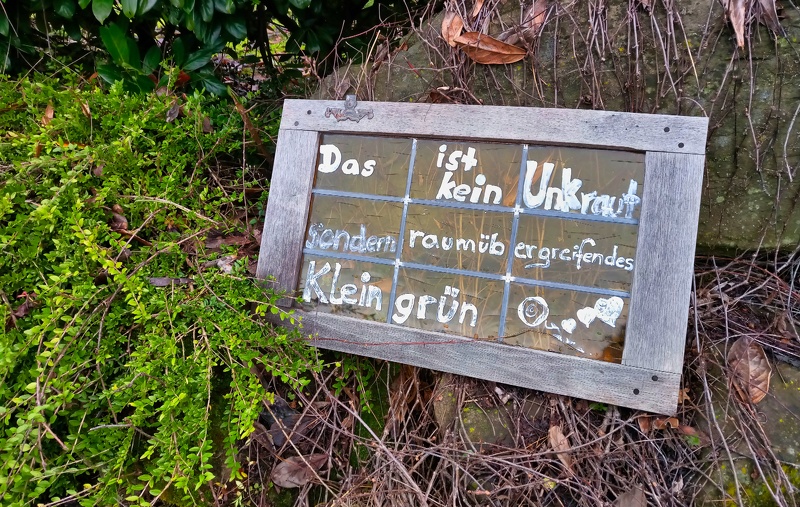 Das ist kein Unkraut
sondern raumüb ergreifendes
Klein grün